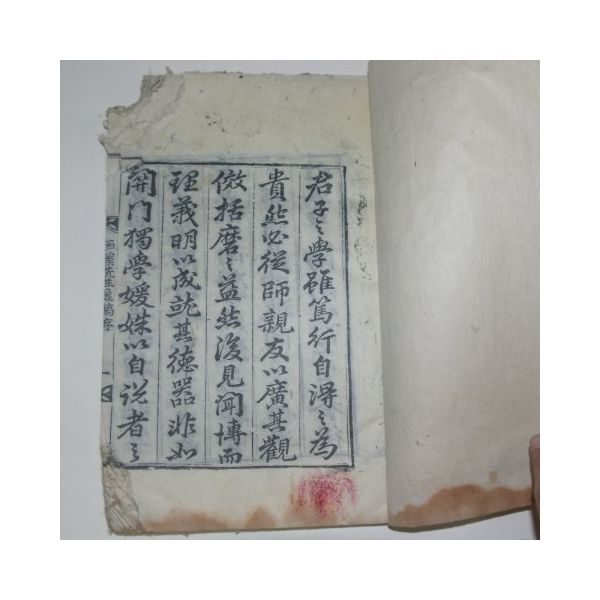 君子之學雖篤行自得之為
貴然必從師親友以廣其觀
傚括磨之益然後見聞博而
理義明以成就其德器非如
閉門獨學媛姝以自說者之
先生逸稿序
一